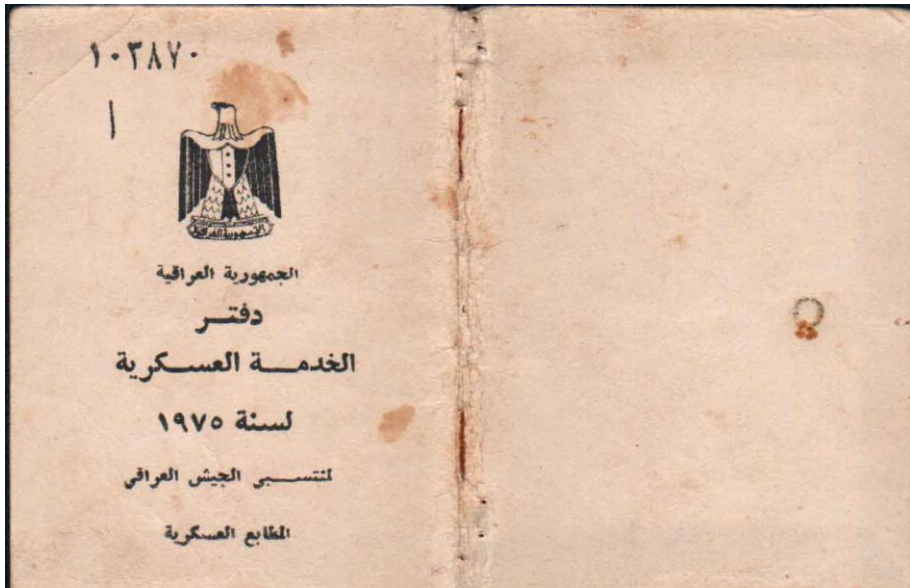 ١٠٣٨٧٠
١
الجمهورية العراقية
الجمهورية العراقية
دفتر
الخدمة العسكرية
لسنة ١٩٧٥
لمنتسبي الجيش العراقي
المطابع العسكرية